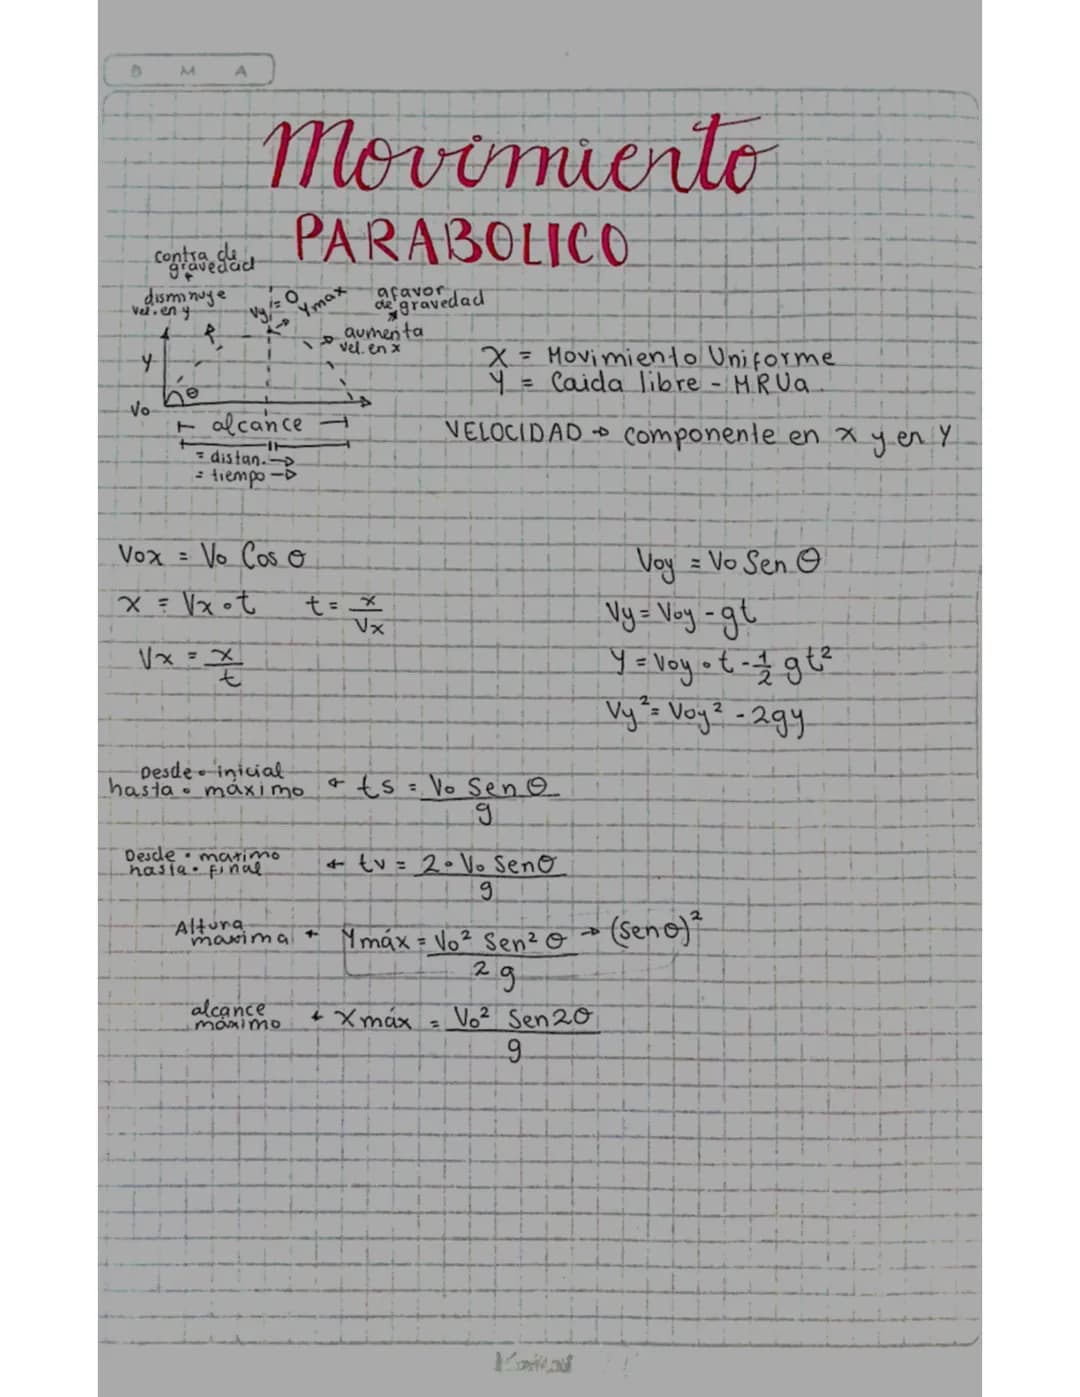 D M A
Movimiento
PARABOLICO
contra de
gravedad
disminuye
vel. en y
Vy = 0
Ymax
afavor
de gravedad
aumenta
vel. en x
Y
θ
Vo
alcance
= distan.
= tiempo
X = Movimiento Uniforme
Y = Caida libre - MRUa.
VELOCIDAD → componente en x y en Y
Vox = Vo Cos θ
x = Vx • t t = x/Vx
Vx = x/t
Voy = Vo Sen θ
Vy = Voy - gt
Y = Voy • t - 1/2 gt²
Vy² = Voy² - 2gy
Desde • inicial
hasta • máximo ← ts = Vo Sen θ/g
Desde • maximo
hasta • final ← tv = 2 • Vo Sen θ/g
Altura
maxima ← Ymáx = Vo² Sen² θ/2g → (sen θ)²
alcance
máximo ← Xmáx = Vo² Sen2θ/g